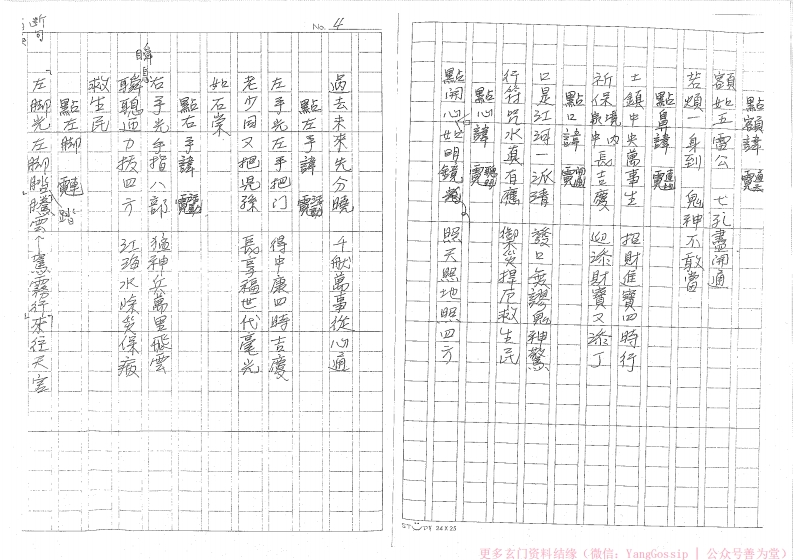 點額諱
額如五雷公 七孔盡開通
若煩一身到 鬼神不敢當
點鼻諱
土鎮中央萬事生 招財進寶四時行
祈保境內長吉慶 迎添財寶又添丁
點口諱
口是江河一派清 發口無謬鬼神驚
行符咒水真有應 禦災捍厄救生民
點心諱
點開心如明鏡 照天照地照四方
No. 4
過去未來先分曉 千般萬事從心通
點左手諱
左手光左手把门 得中康四時吉慶
老少回又把兒孫 長享福世代毫光
如石崇
點右手諱
右手光手指八部 猛神兵萬里飛雲
聽通力拔四方 江海水除災保病
救生民
點左脚 踏
左脚光左脚騰雲 駕霧行來往天宮
断句
STUDY 24X25
更多玄门资料结缘（微信：YangGossip | 公众号善为堂）